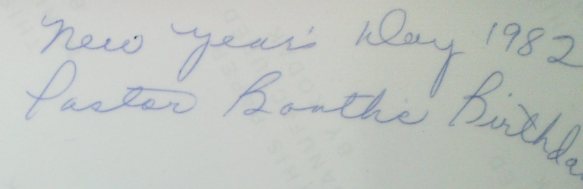 New Year's Day 1982
Pastor Booths Birthda